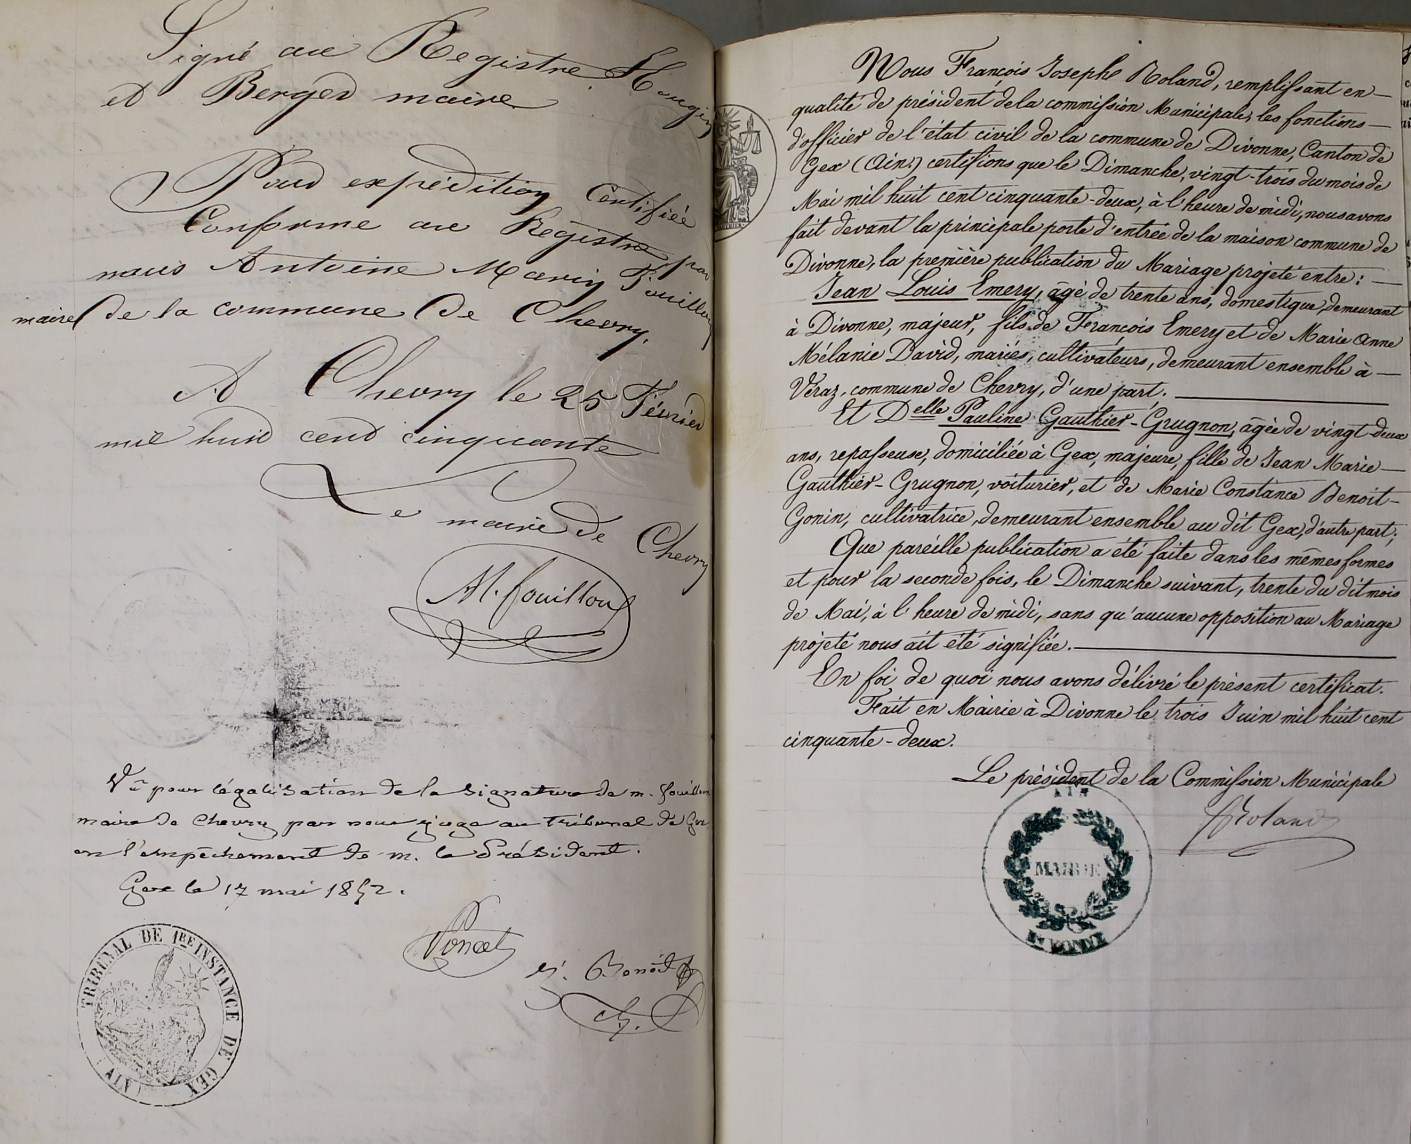 Signé au Registre, Hougin
et Berger maire
Pour expédition Certifiée
Conforme au Registre par
nous Antoine Marin Fouillou
maire de la commune de Chevry.
A Chevry le 25 Février
mil huit cent cinquante
Le maire de Chevry
AM. fouillou
Vu pour légalisation de la signature de m. fouillou
maire de Chevry par nous juge au tribunal de Gex
en l'empêchement de m. le Président.
Gex le 17 mai 1852.
Poncet
Benoit
TRIBUNAL DE 1RE INSTANCE DE GEX (AIN)
Nous François Joseph Roland, remplissant en
qualité de président de la commission Municipale, les fonctions
d'officier de l'état civil de la commune de Divonne, Canton de
Gex (Ain,) certifions que le Dimanche, vingt-trois du mois de
Mai mil huit cent cinquante-deux, à l'heure de midi, nous avons
fait devant la principale porte d'entrée de la maison commune de
Divonne, la première publication du Mariage projeté entre:
Jean Louis Emery, âgé de trente ans, domestique, demeurant
à Divonne, majeur, fils de François Emery et de Marie Anne
Mélanie David, mariés, cultivateurs, demeurant ensemble à
Véraz, commune de Chevry, d'une part.
Et Delle Pauline Gauthier-Grugnon, âgée de vingt-deux
ans, repasseuse, domiciliée à Gex, majeure, fille de Jean Marie
Gauthier-Grugnon, voiturier, et de Marie Constance Benoit-
Gonin, cultivatrice, demeurant ensemble au dit Gex, d'autre part;
Que pareille publication a été faite dans les mêmes formes
et pour la seconde fois, le Dimanche suivant, trente du dit mois
de Mai, à l'heure de midi, sans qu'aucune opposition au Mariage
projeté nous ait été signifiée.
En foi de quoi nous avons délivré le présent certificat.
Fait en Mairie à Divonne le trois Juin mil huit cent
cinquante-deux.
Le président de la Commission Municipale
Roland
AIN
MAIRIE
DIVONNE